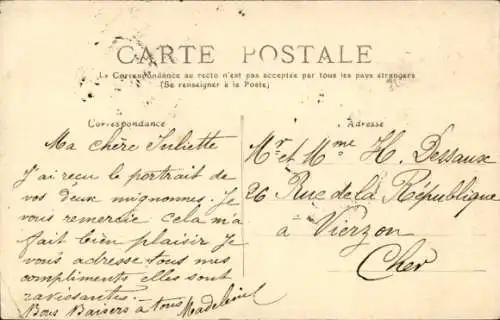 CARTE POSTALE
La Correspondance au recto n'est pas acceptée par tous les pays étrangers
(Se renseigner à la Poste)
Correspondance
Ma chère Juliette
J'ai recu le portrait de
vos deux mignonnes. Je
vous remercie cela m'a
fait bien plaisir Je
vous adresse tous mes
compliments elles sont
ravissantes.
Bons Baisers à tous Madeleine
Adresse
Mr et Mme H. Dessaux
26 Rue de la République
à Vierzon
Cher